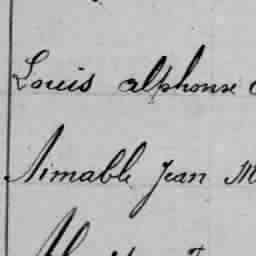 Louis alphonse
Aimable Jean M